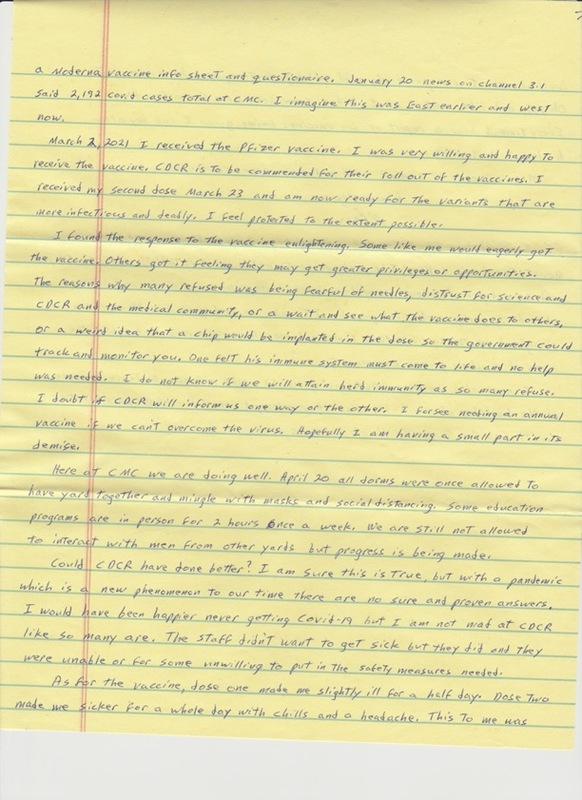 a Moderna vaccine info sheet and questionaire. January 20 news on channel 3.1
said 2,192 covid cases total at CMC. I imagine this was East earlier and west
now.
March 2, 2021 I received the Pfizer vaccine. I was very willing and happy to
receive the vaccine. CDCR is to be commended for their roll out of the vaccines. I
received my second dose March 23 and am now ready for the variants that are
more infectious and deadly. I feel protected to the extent possible.
I found the response to the vaccine enlightening. Some like me would eagerly get
the vaccine. Others got it feeling they may get greater privileges or opportunities.
The reasons why many refused was being fearful of needles, distrust for science and
CDCR and the medical community, or a wait and see what the vaccine does to others,
or a weird idea that a chip would be implanted in the dose so the government could
track and monitor you. One felt his immune system must come to life and no help
was needed. I do not know if we will attain herd immunity as so many refuse.
I doubt if CDCR will inform us one way or the other. I forsee needing an annual
vaccine if we can't overcome the virus. Hopefully I am having a small part in its
demise.
Here at CMC we are doing well. April 20 all dorms were once allowed to
have yard together and mingle with masks and social distancing. Some education
programs are in person for 2 hours once a week. We are still not allowed
to interact with men from other yards but progress is being made.
Could CDCR have done better? I am sure this is true, but with a pandemic
which is a new phenomenon to our time there are no sure and proven answers.
I would have been happier never getting Covid-19 but I am not mad at CDCR
like so many are. The staff didn't want to get sick but they did and they
were unable or for some unwilling to put in the safety measures needed.
As for the vaccine, dose one made me slightly ill for a half day. Dose Two
made me sicker for a whole day with chills and a headache. This to me was